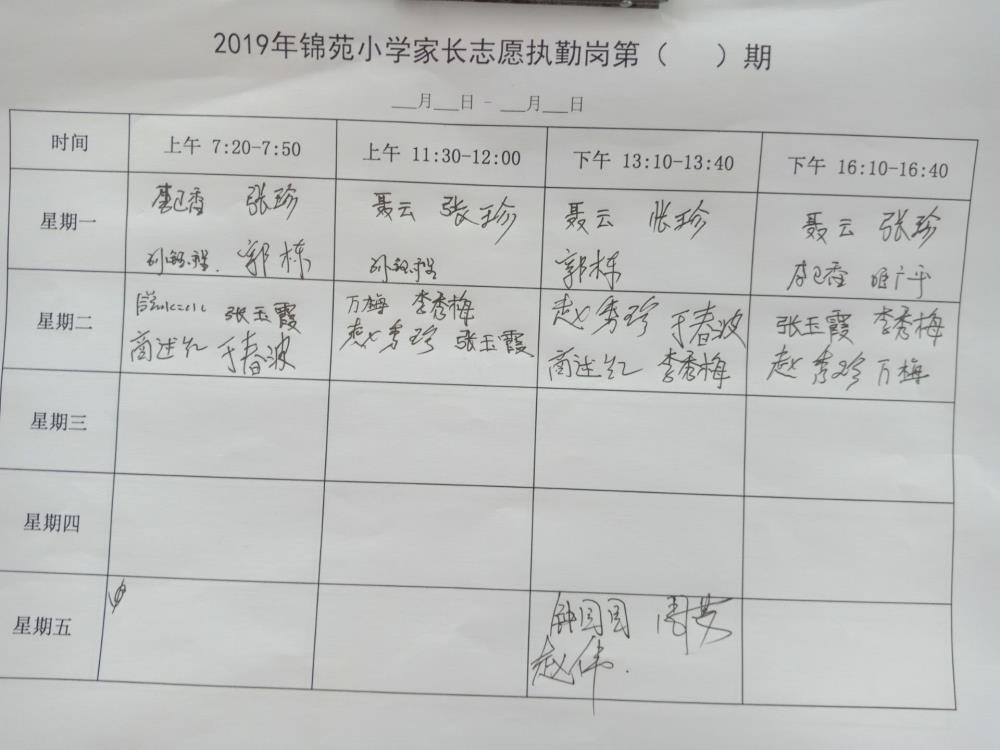 2019年锦苑小学家长志愿执勤岗第（ ）期
___月___日 - ___月___日
时间 上午 7:20-7:50 上午 11:30-12:00 下午 13:10-13:40 下午 16:10-16:40
星期一 张珍 聂云 张珍 聂云 张珍 聂云 张珍
郭栋 郭栋
星期二 张玉霞 万梅 李秀梅 赵秀珍 于春波 张玉霞 李秀梅
于春波 赵秀珍 张玉霞 李秀梅 赵秀珍 万梅
星期三
星期四
星期五 周英
赵伟.